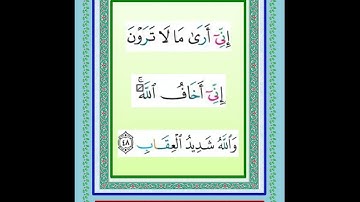 إِنِّىٓ أَرَىٰ مَا لَا تَرَوْنَ
إِنِّىٓ أَخَافُ ٱللَّهَ ۚ
وَٱللَّهُ شَدِيدُ ٱلْعِقَابِ ٤٨